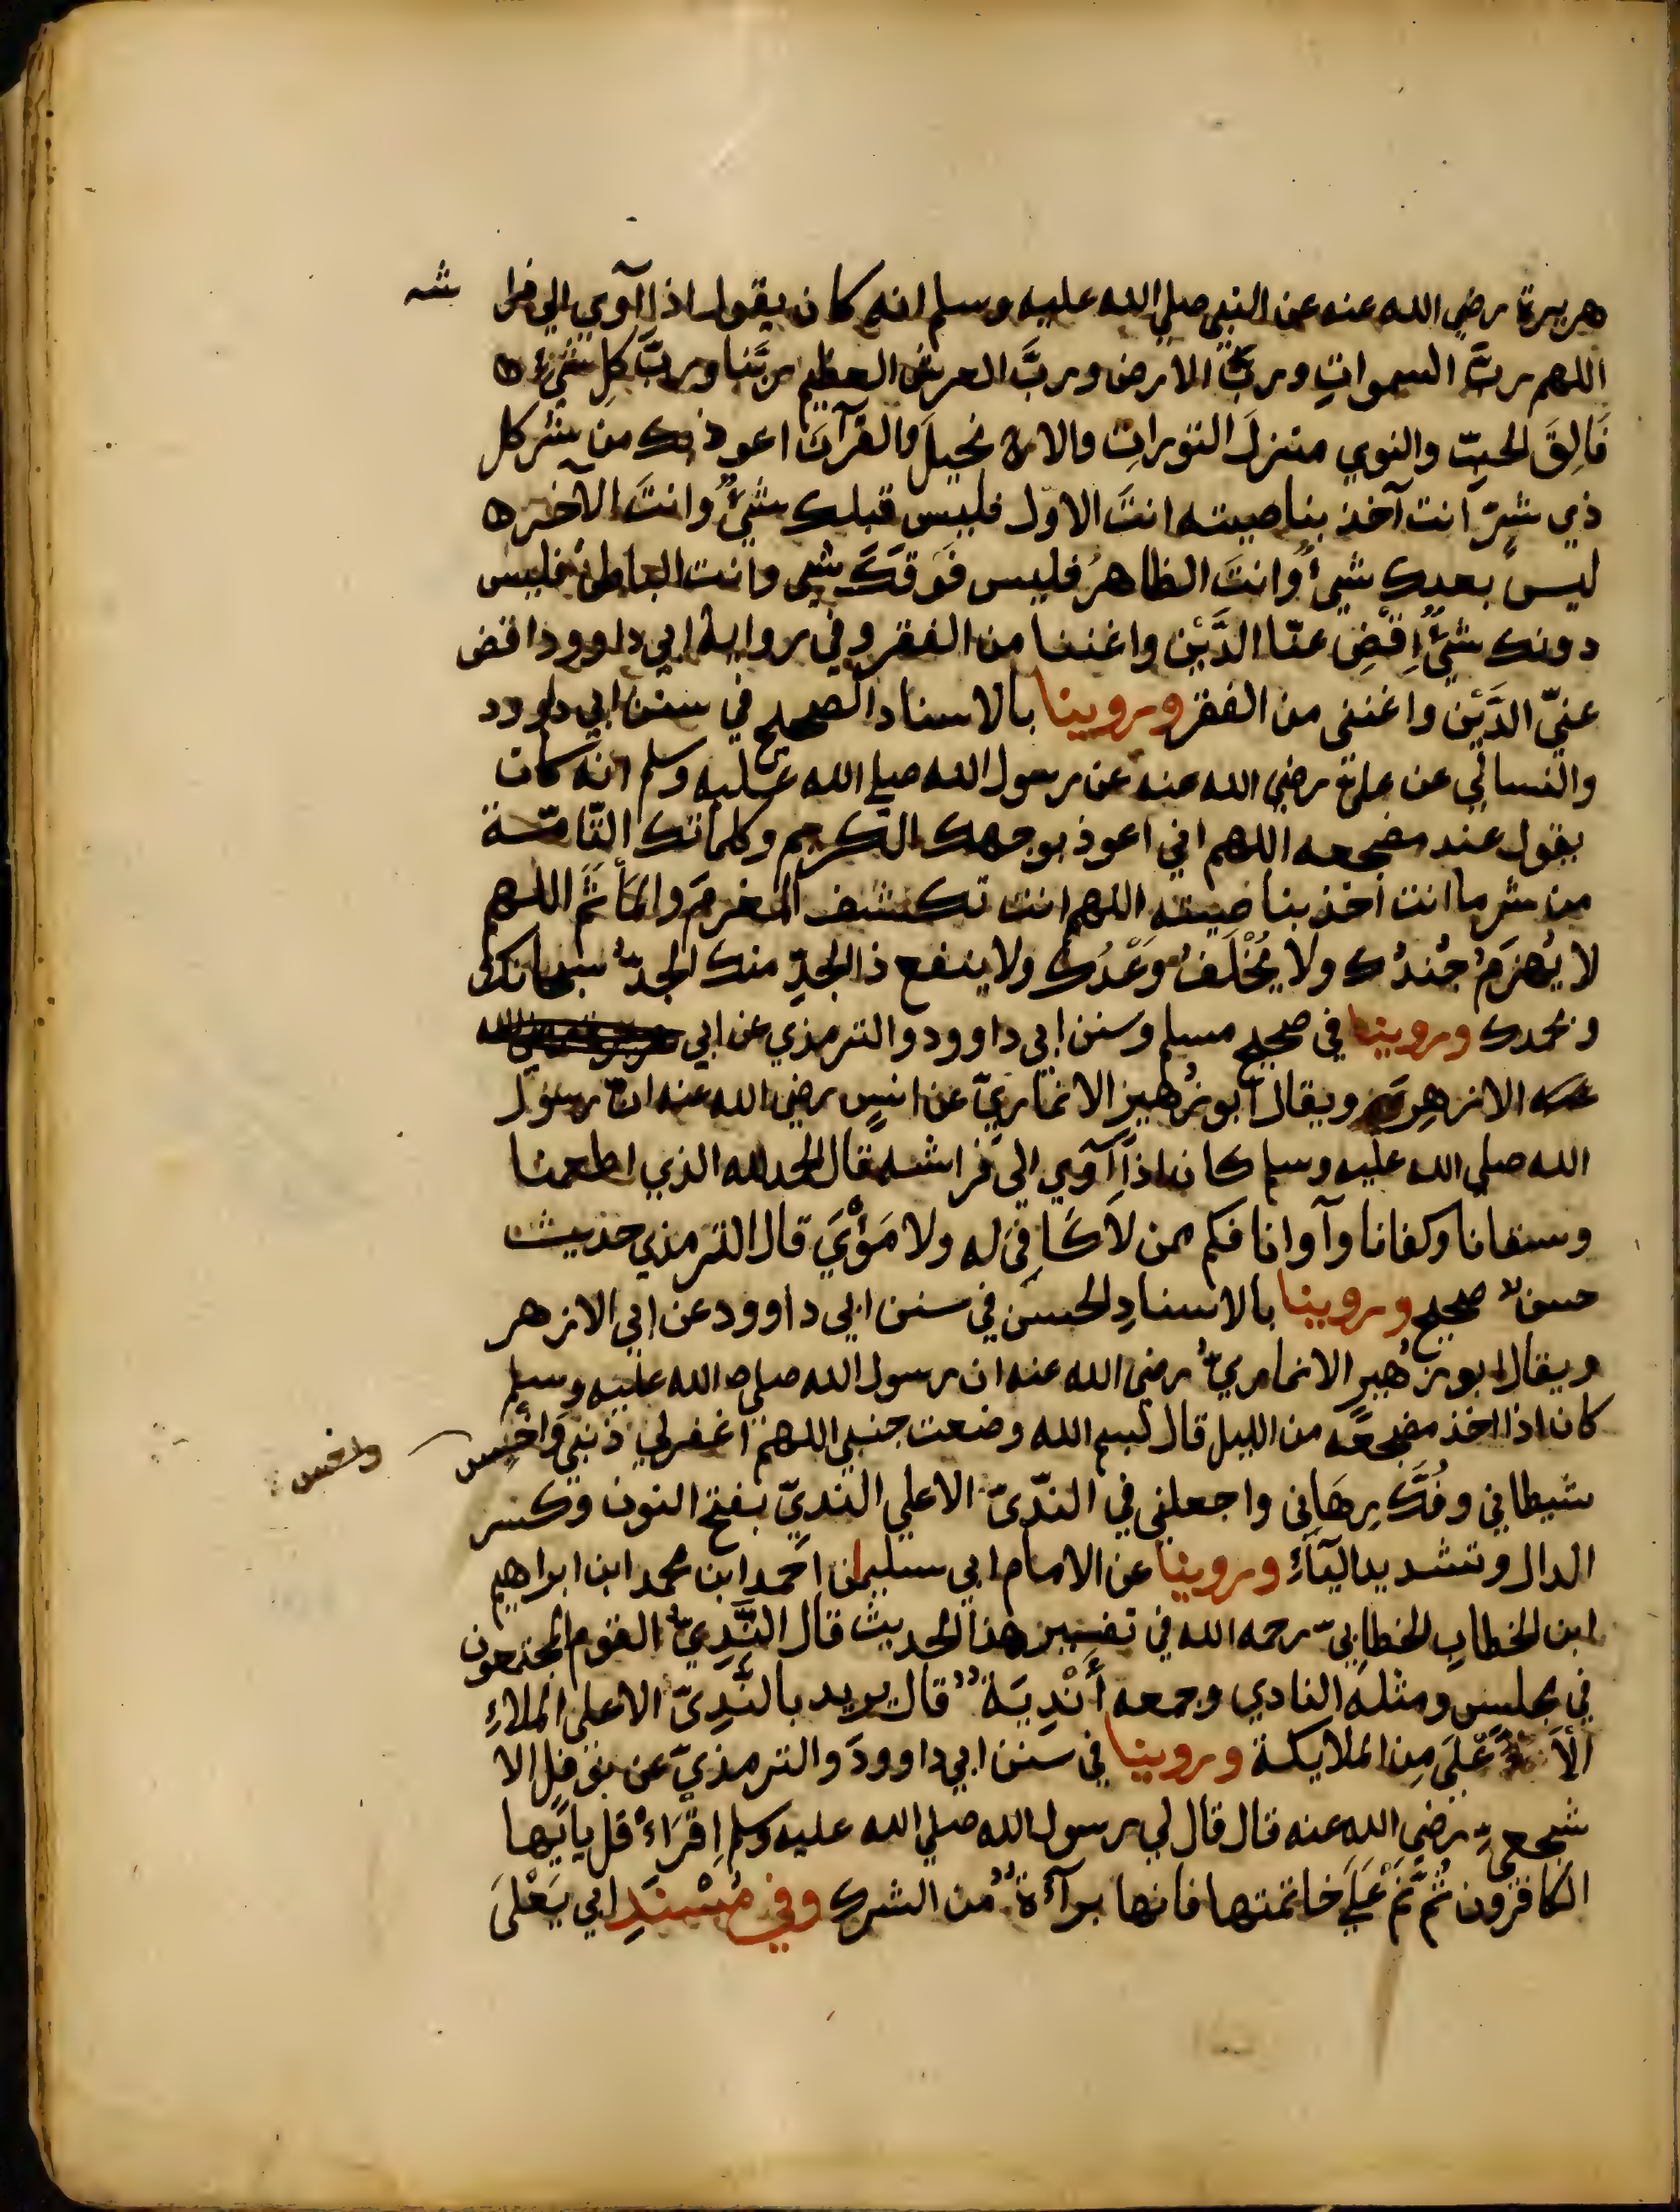 هريرة رضي الله عنه عن النبي صلي الله عليه وسلم انه كان يقول اذا آوي الي فرا شه
اللهم ربَّ السموات وربَّ الارض وربَّ العرش العظيم ربَّنا وربَّ كلِ شيءٍ ه
فَالِقَ الحبِّ والنوي منزلَ التورات والان نجيلَ والقرآنَ اعوذ بك من شر كل
ذي شرٍّ انت آخذ بناصيته انتَ الاوّل فليس قبلك شيءٌ وانتَ الآخر ه
ليس بعدك شيءٌ وانتَ الظاهرُ فليس فَوقَكَ شي وانت الباطن فليس
دونك شيءٌ اِقْضِ عنّا الدَّيْن واغننا من الفقر وفي رواية ابي داوود اقض
عنيّ الدَّيْن واغنني من الفقر وروينا بالاسناد الصحيح في سنن ابي داوود
والنسائي عن عليّ رضي الله عنه عن رسول الله صلي الله عليه وسلم انه كان
يقول عند مضجعه اللهم اني اعوذ بوجهك الكريم وكلماتك التّامّة
من شر ما انت اخذ بناصيته اللهم انت تكشف المغرمَ والمأثَمَ اللهم
لا يُهزَمُ جُندُك ولا يُخْلَفُ وَعْدُك ولا ينفع ذ الجدِّ منك الجدُّ سبحانك
وبحمدك وروينا في صحيح مسلم وسنن ابي داوود والترمذي عن ابي
الازهر ويقال ابو زُهير الانماريّ عن انسٍ رضي الله عنه انّ رسول
الله صلي الله عليه وسلم كان اذا آوي الي فراشه قال الحمد لله الذي اطعمنا
وسقانا وكفانا وآوانا فكم ممن لا كَافيَ له ولا مَؤْيَ قال الترمذي حديث
حسنٌ صحيح وروينا بالاسنادِ الحسن في سنن ابي داوود عن ابي الازهر
ويقال ابو زُهير الانماريّ رضي الله عنه ان رسول الله صلي الله عليه وسلم
كان اذا اخذ مضجعَه من الليل قال بسم الله وضعت جنبي اللهم اغفرلي ذنبي واخس
واخس
شيطاني وفُكَّ رِهَاني واجعلني في النّديّ الاعلي النديّ بفتح النون وكسر
الدال وتشديد اليآءِ وروينا عن الامام ابي سليمان احمد ابن محمد ابن ابراهيم
ابن الخطاب الخطابيّ رحمه الله في تفسير هذ الحديث قال النَّدِيّ القوم المجتمعون
في مجلس ومثله النادي وجمعه أَنْدِيَةٌ قال يريد بالنَّدِيّ الاعلى الملاءِ
الاَعْلَى مِن الملايكة وروينا في سنن ابي داوودَ والترمذيّ عن نوفل الا
شجعيّ رضي الله عنه قال قال لي رسول الله صلي الله عليه وسلم اِقْرَاءْ قل يايّها
الكافرون ثُمَّ نَمْ عَلَي خاتمتها فانها برآءةٌ من الشرك وفي مُسْنَدِ ابي يَعْلَى